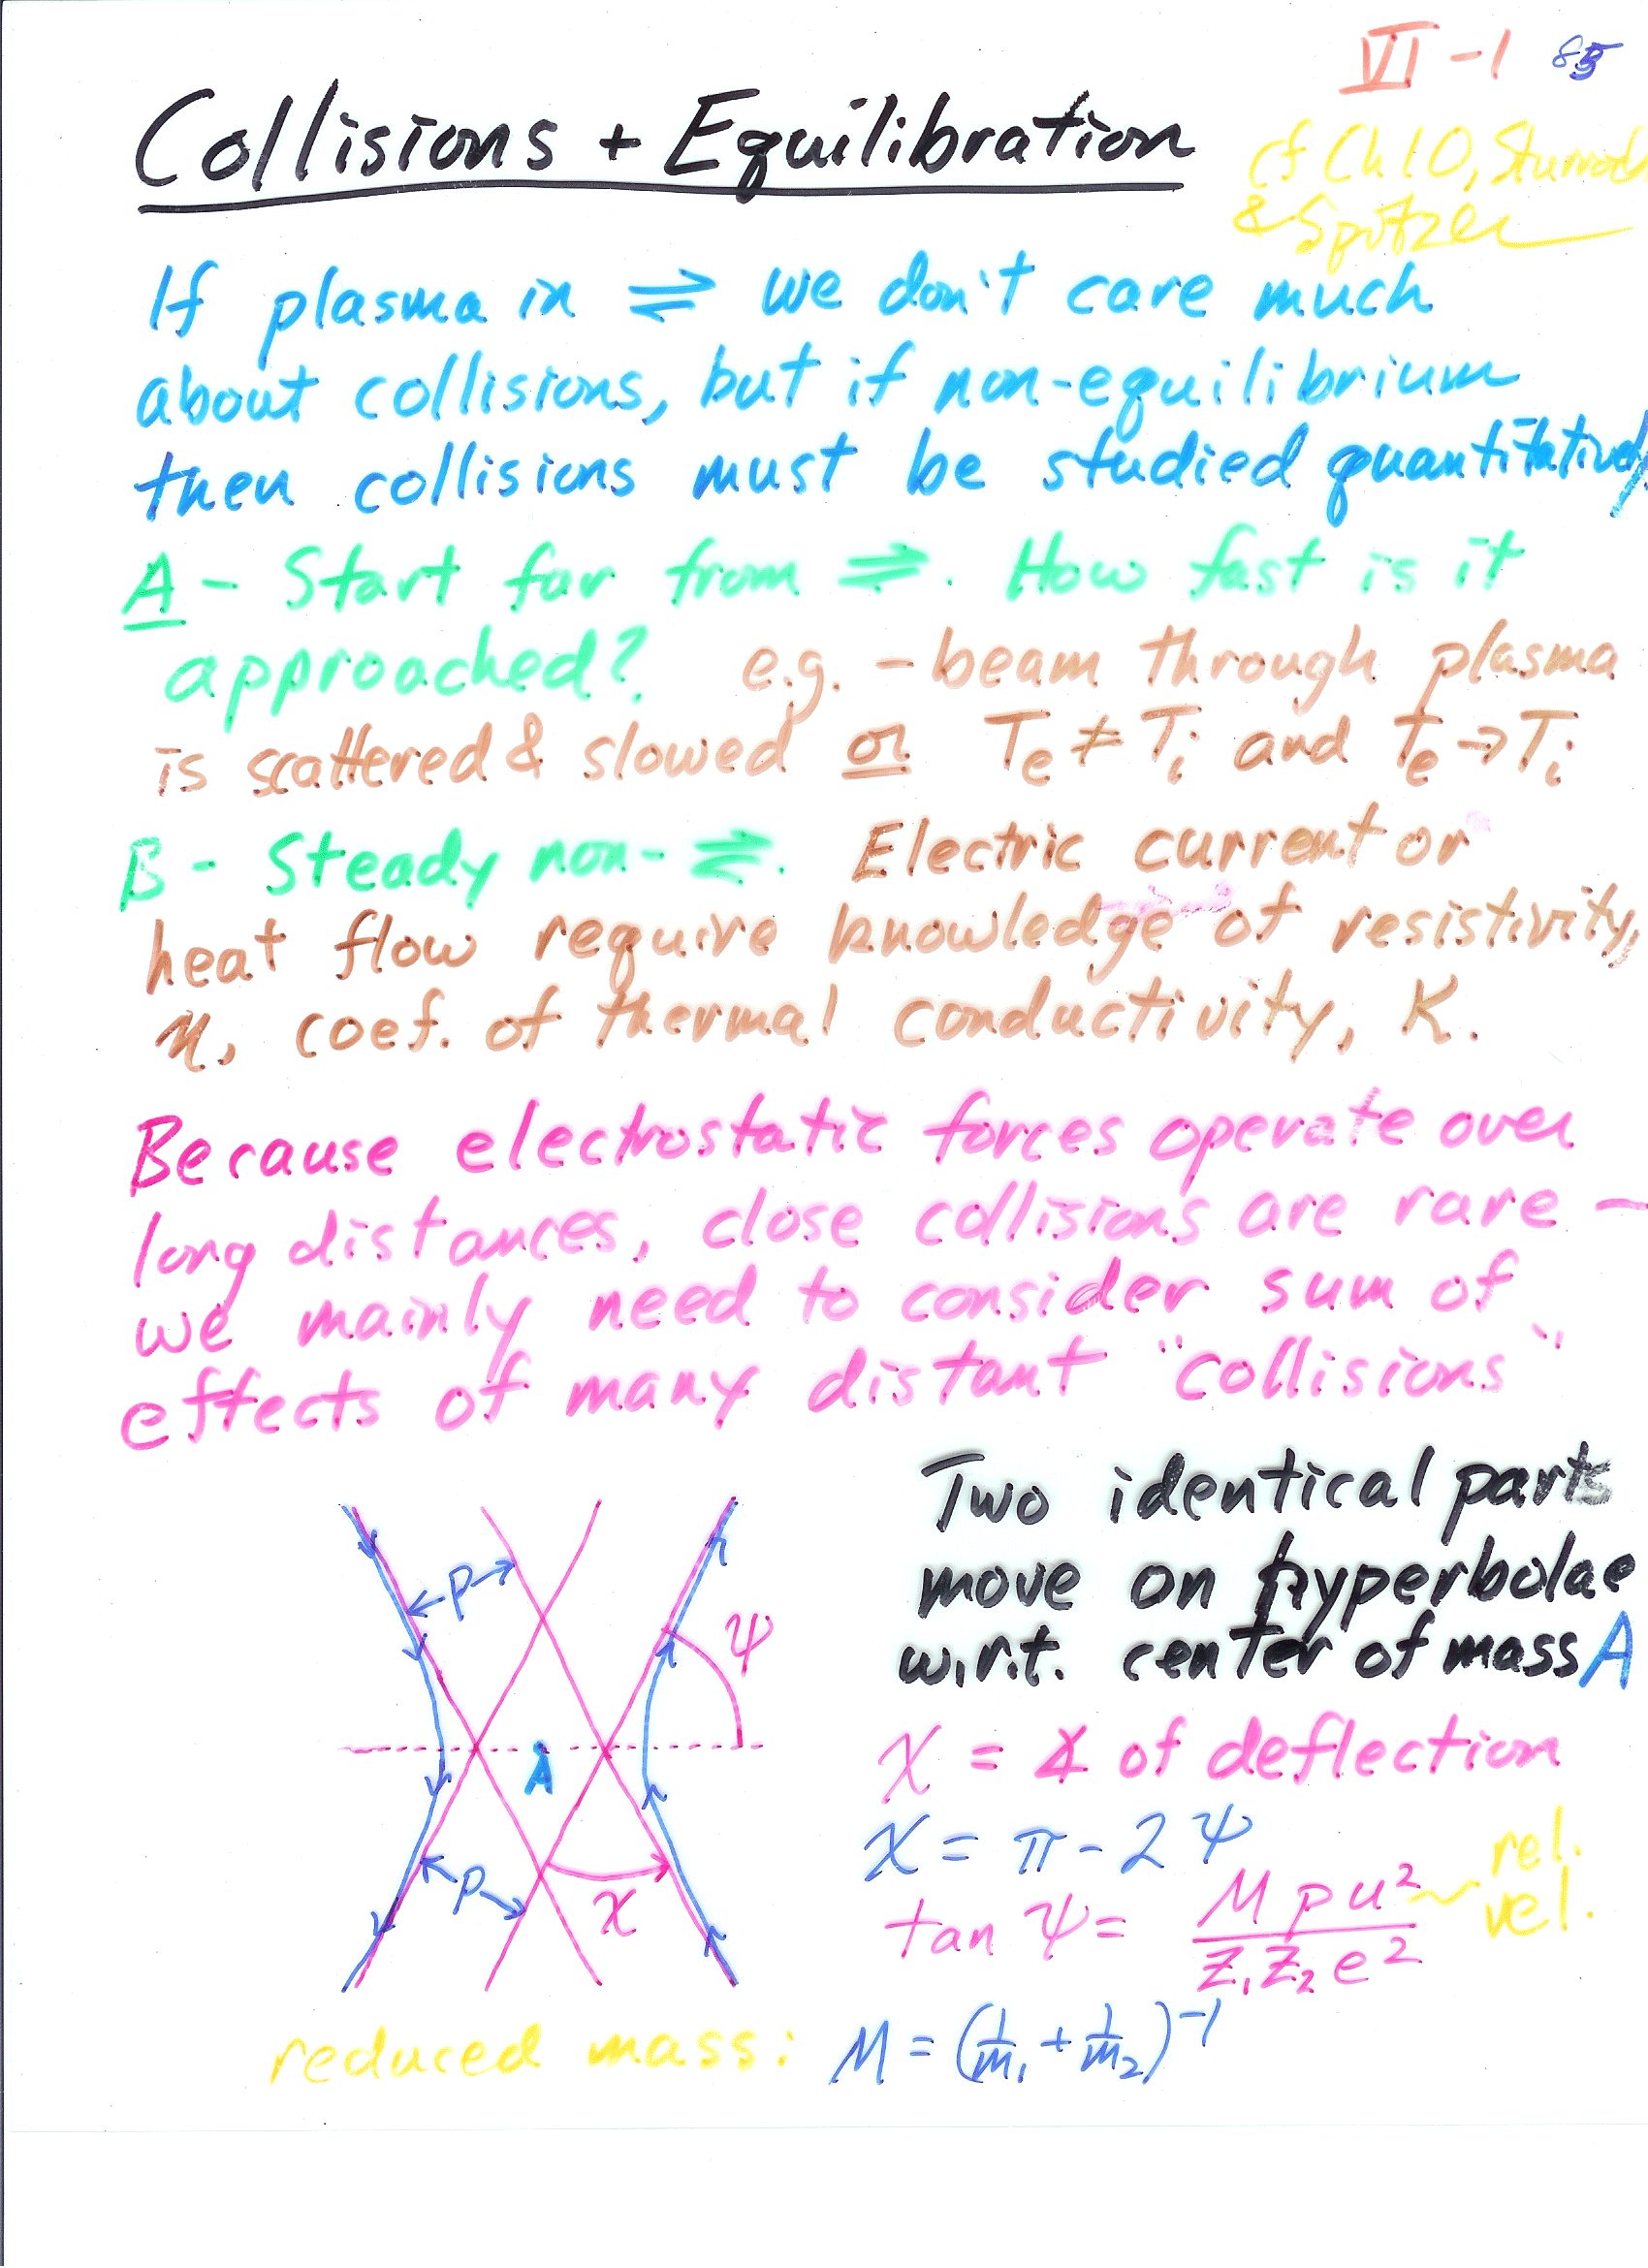 VI-1 85
Collisions + Equilibration
cf Ch 10, Sturrock
& Spitzer
If plasma in ⇌ we don't care much
about collisions, but if non-equilibrium
then collisions must be studied quantitatively.
A - Start far from ⇌. How fast is it
approached? e.g. - beam through plasma
is scattered & slowed or Te ≠ Ti and Te → Ti
B - Steady non-⇌. Electric current or
heat flow require knowledge of resistivity,
η, coef. of thermal conductivity, K.
Because electrostatic forces operate over
long distances, close collisions are rare —
we mainly need to consider sum of
effects of many distant "collisions"
Two identical parts
move on hyperbolae
w.r.t. center of mass A
p
ψ
A
χ = ∡ of deflection
χ = π - 2ψ
p
χ
tan ψ = M p u² / Z₁Z₂e² ~ rel. vel.
reduced mass: M = (1/m₁ + 1/m₂)⁻¹